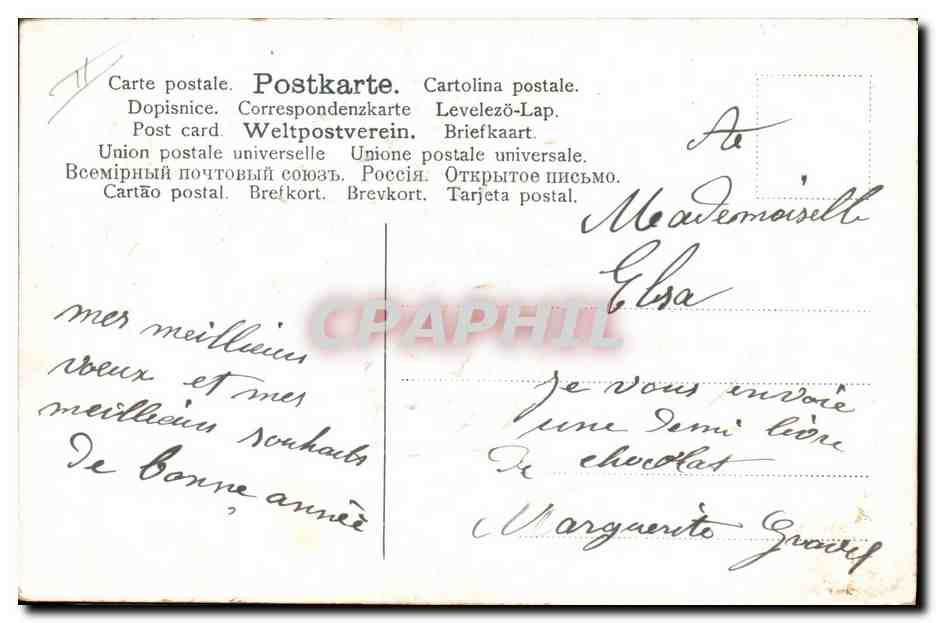 Carte postale. Postkarte. Cartolina postale.
Dopisnice. Correspondenzkarte Levelező-Lap.
Post card. Weltpostverein. Briefkaart.
Union postale universelle Unione postale universale.
Всемірный почтовый союзъ. Россія. Открытое письмо.
Cartão postal. Brefkort. Brevkort. Tarjeta postal.
mes meillieurs
voeux et mes
meillieurs souhaits
de bonne année
A
Mademoiselle
Elsa
je vous envoie
une demi livre
de chocolat
Marguerite
CPAPHIL